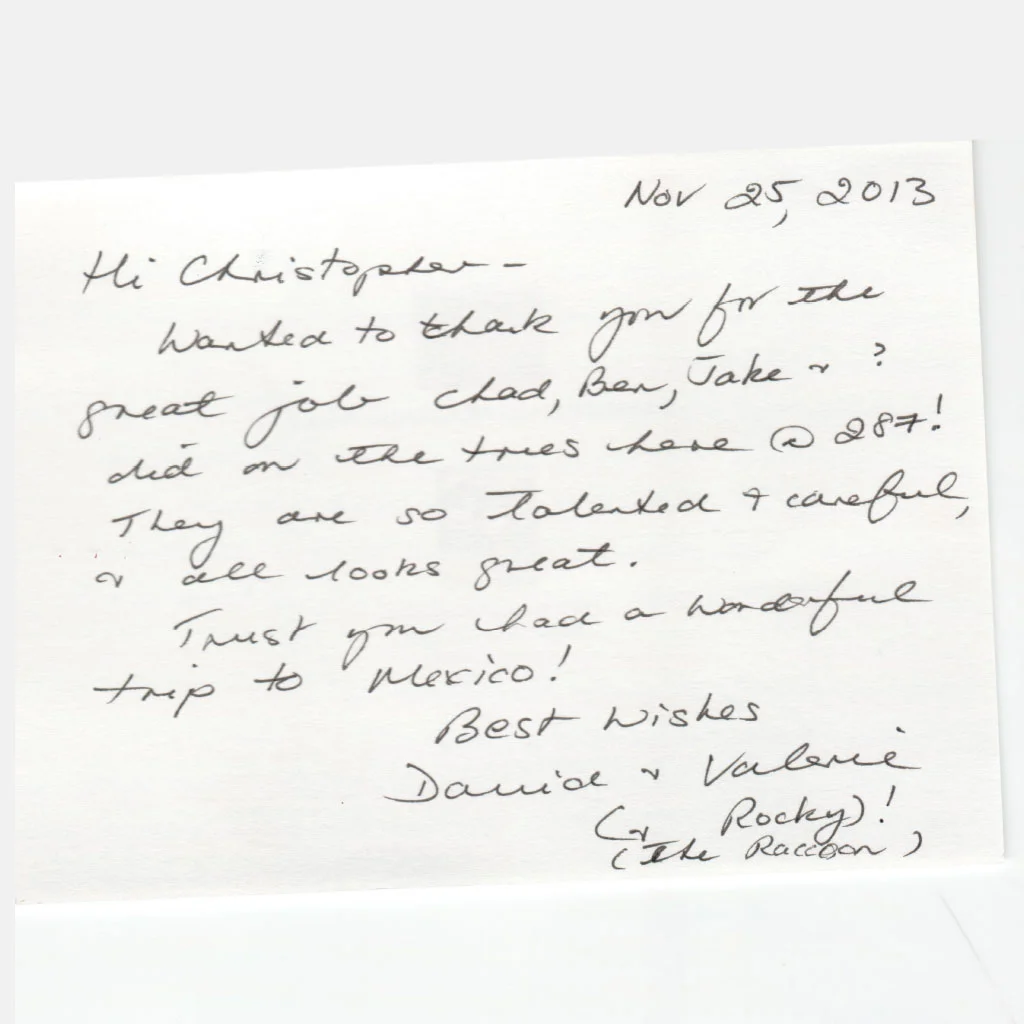 Nov 25, 2013
Hi Christopher -
Wanted to thank you for the
great job Chad, Ben, Jake & ?
did on the trees here @ 287!
They are so talented & careful,
& all looks great.
Trust you had a wonderful
trip to Mexico!
Best Wishes
David & Valerie
(& Rocky)!
(The Raccoon)